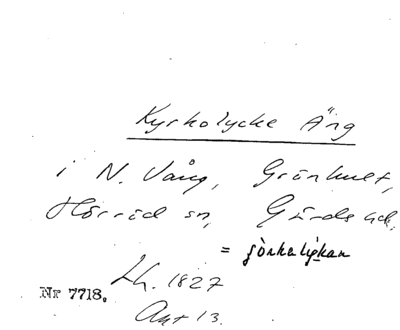 Kyrkolycke Äng
i N. Vång, Grönhult,
Hörröd sn, Gärds hd.
= jörkalyckan
Lh. 1827
Nr 7718.
Akt 13.